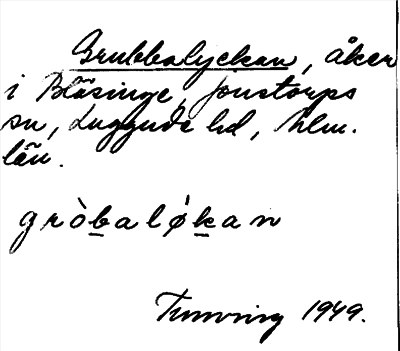 Grubbalyckan, åker
i Bläsinge, Jonstorps
sn, Luggude hd, Mlm.
län.
gròbaløkan
Tunving 1949.